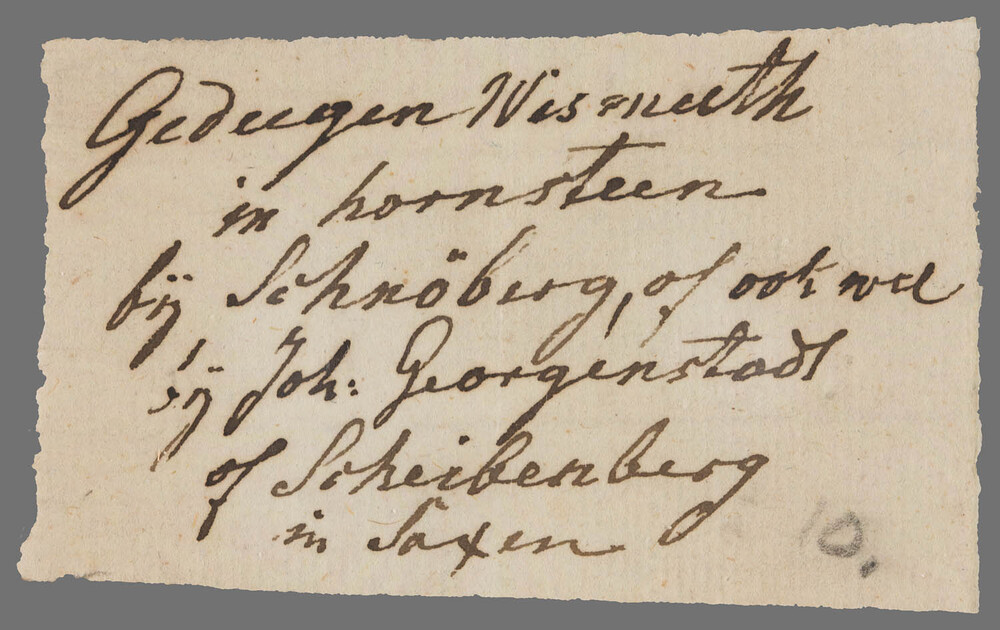 Gedeegen Wismuth
in hornsteen
bÿ Schnöberg, of ook wel
bÿ Joh: Georgenstadt
of Scheibenberg
in Saxen
10.